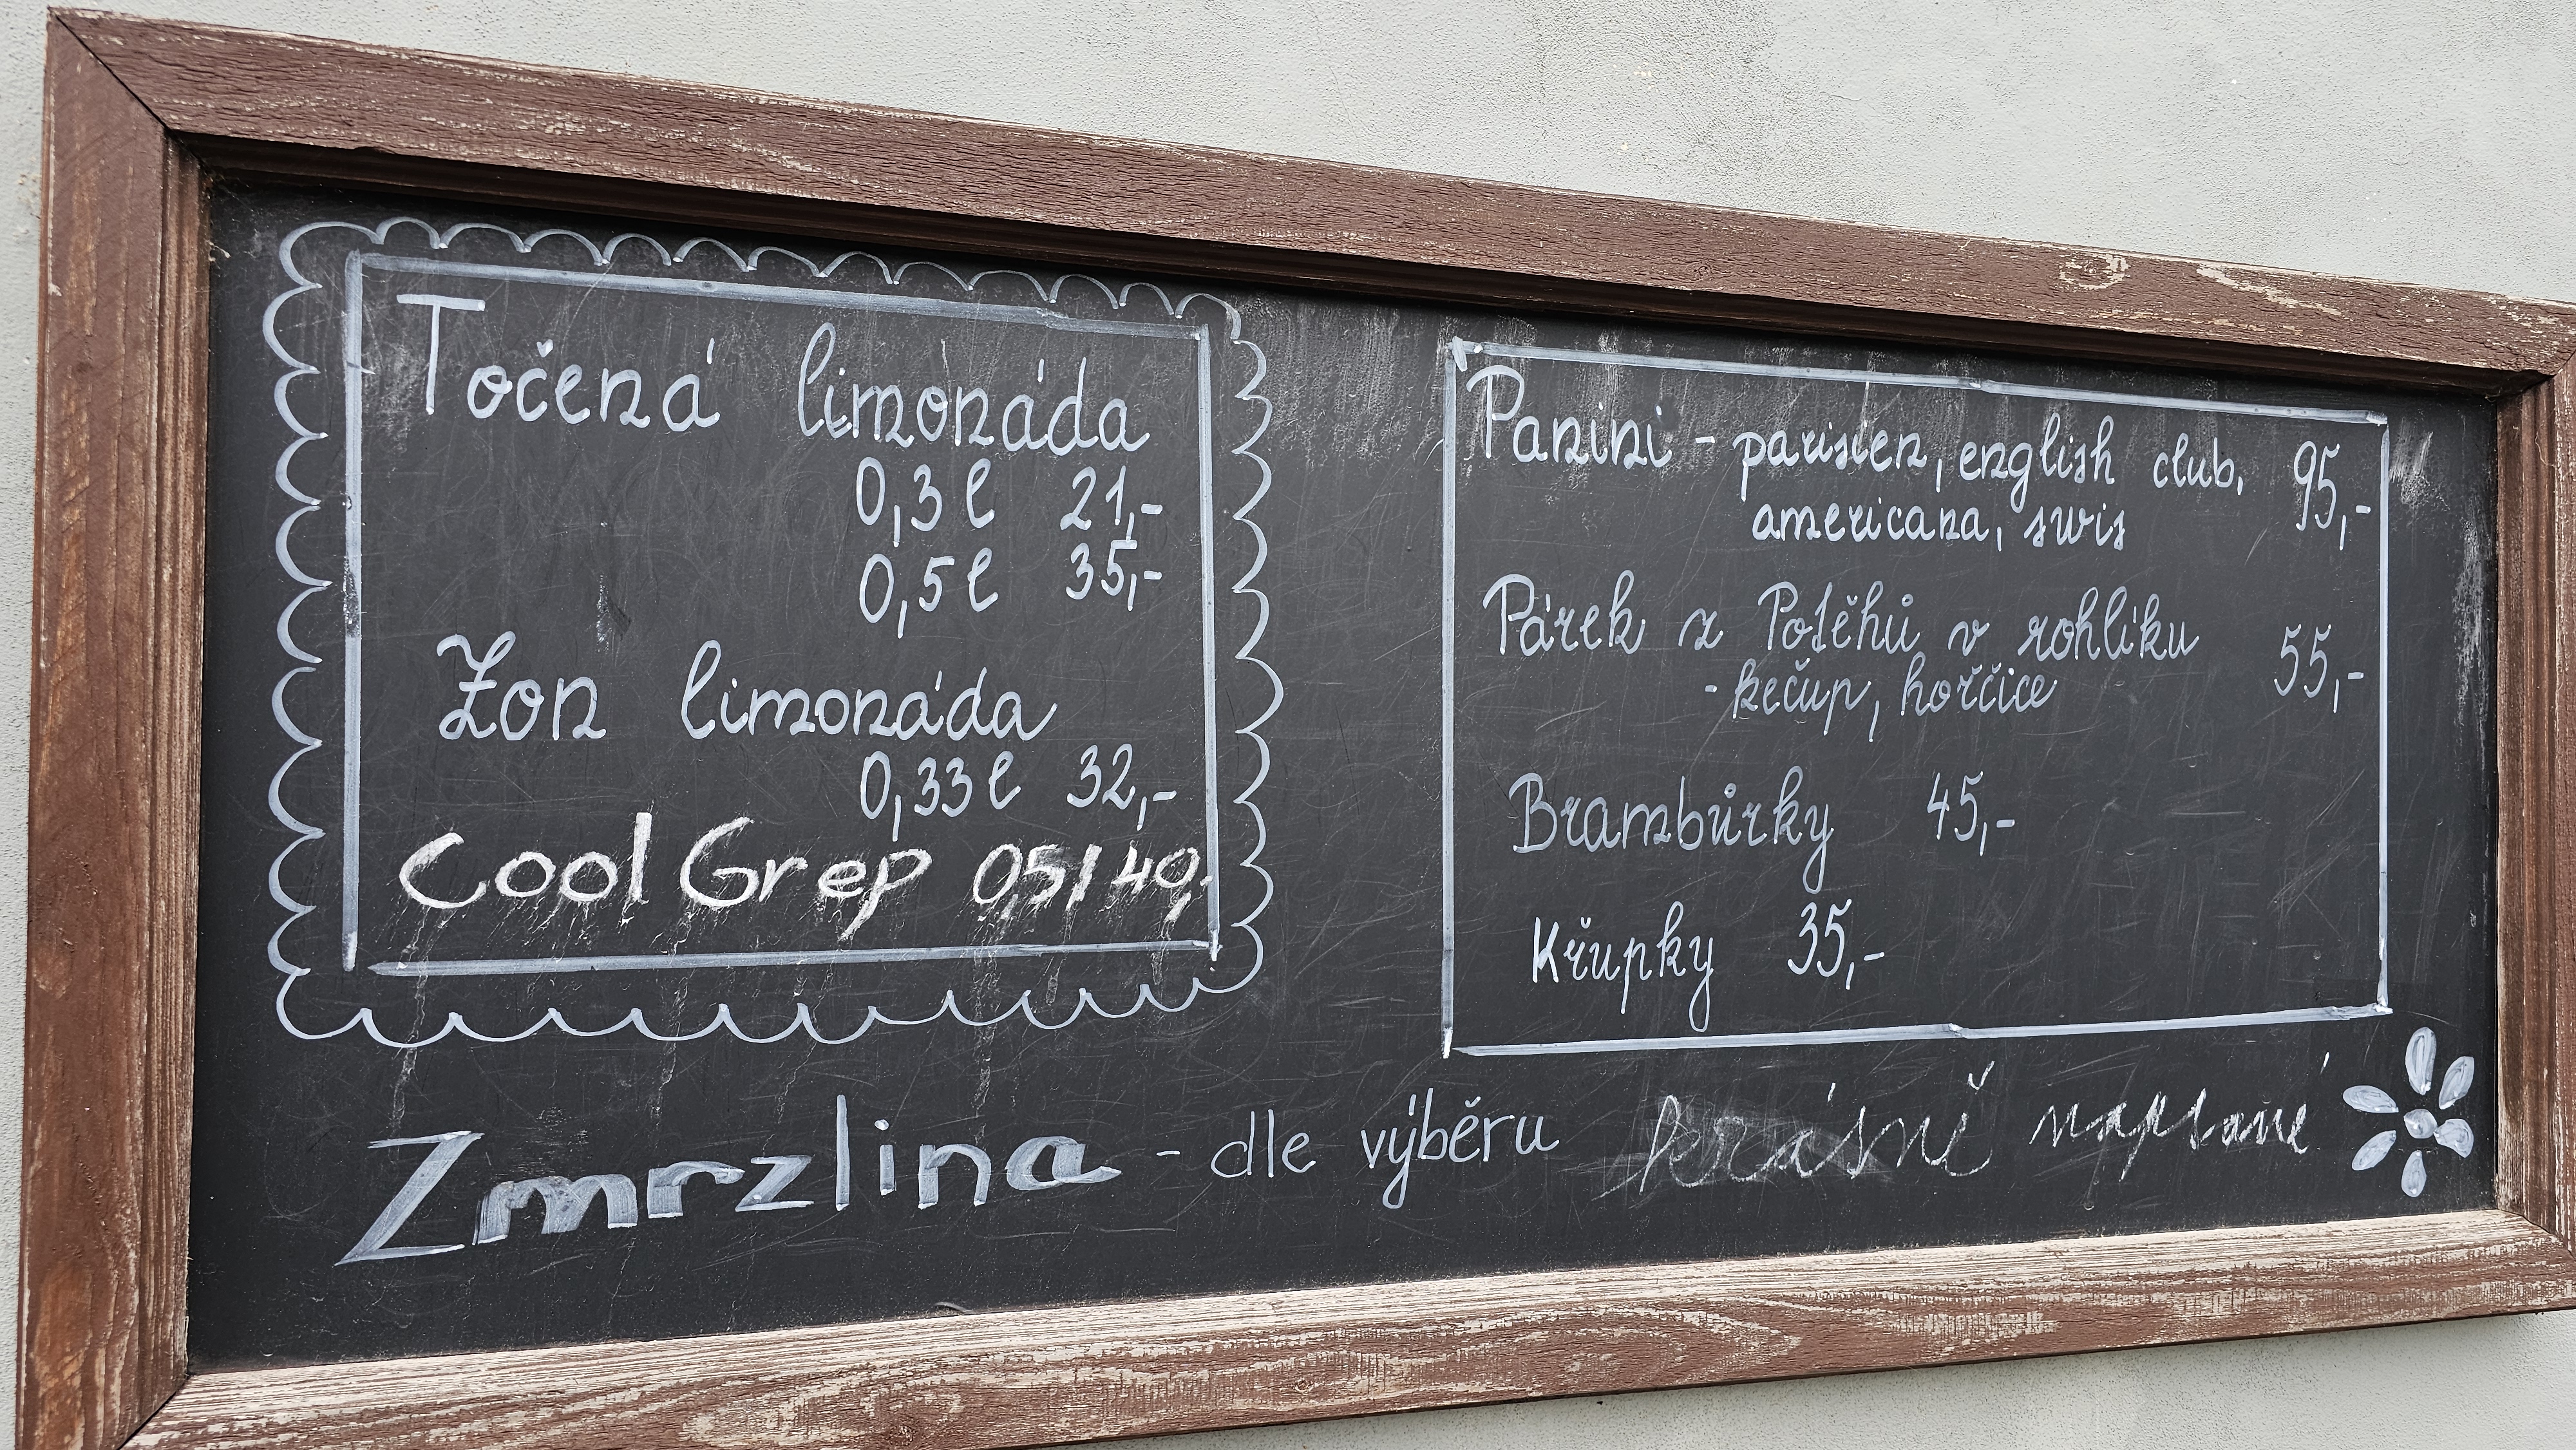 Točená limonáda
0,3l 21,-
0,5l 35,-
Zon limonáda
0,33l 32,-
Cool Grep 0,5l 40,-
Panini - parisien, english club, 95,-
americana, swis
Párek z Potěhů v rohlíku 55,-
- kečup, hořčice
Brambůrky 45,-
Křupky 35,-
Zmrzlina - dle výběru
krásně napsané